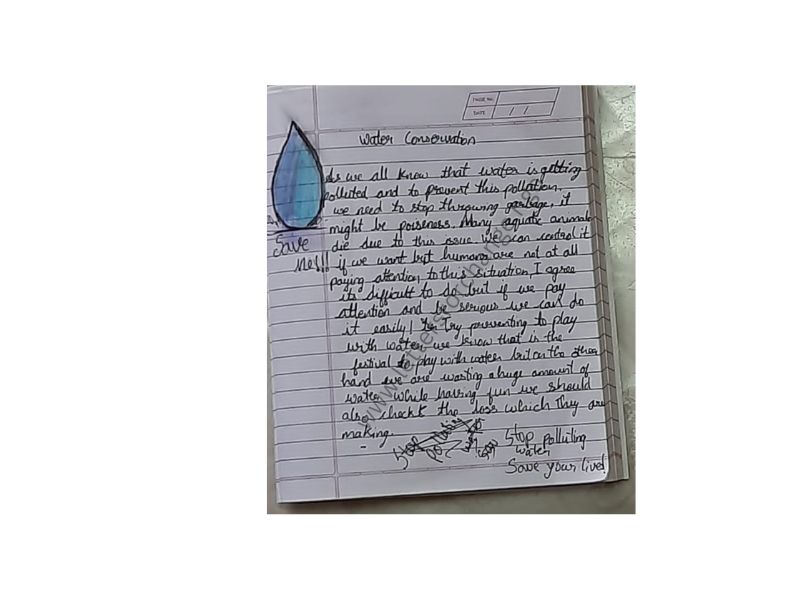 PAGE No.
DATE / /
Water Conservation
As we all know that water is getting
polluted and to prevent this pollution,
we need to stop throwing garbage, it
might be poiseness. Many aquatic animals
die due to this issue We can control it
if we want but humans are not at all
paying attention to this situation, I agree
its difficult to do but if we pay
attention and be serious we can do
it easily! Try prreventing to play
with water we know that is the
festival to play with water but on the other
hand we are wasting a huge amount of
water while having fun we should
also check the loss which They are
making.
Save
Me!!!
Stop polluting
water
Save your live!
www.lettersforchange